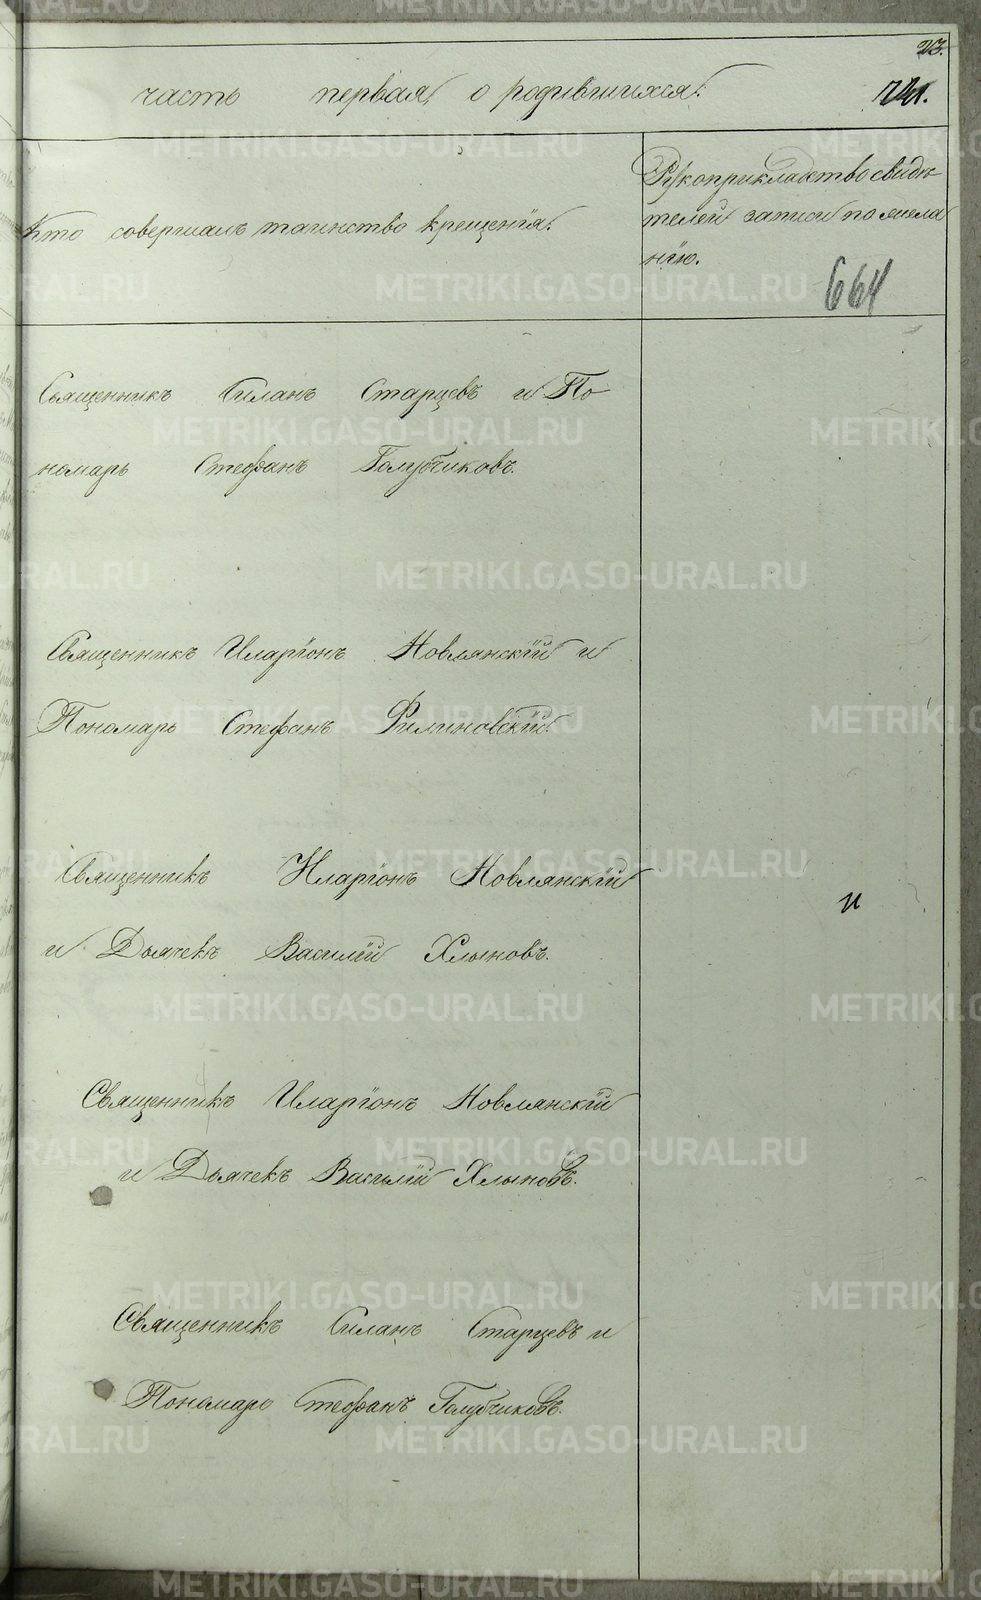 23.
часть первая, о родившихся.
Кто совершалъ таинство крещенія.
Рукоприкладство свидѣ
телей записи по жела
нію.
664
Священникъ Силанъ Старцевъ и По
номарь Стефанъ Голубчиковъ.
Священникъ Иларіонъ Новлянскій и
Пономарь Стефанъ Филиновскій.
Священникъ Иларіонъ Новлянскій
и Дьячекъ Василій Хлыновъ.
Священникъ Иларіонъ Новлянскій
и Дьячекъ Василій Хлыновъ.
Священникъ Силанъ Старцевъ и
Пономарь Стефанъ Голубчиковъ.
METRIKI.GASO-URAL.RU